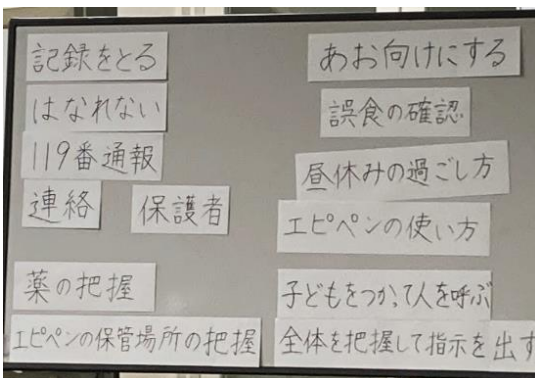 記録をとる
はなれない
119番通報
連絡
保護者
薬の把握
エピペンの保管場所の把握
あお向けにする
誤食の確認
昼休みの過ごし方
エピペンの使い方
子どもをつかって人を呼ぶ
全体を把握して指示を出す